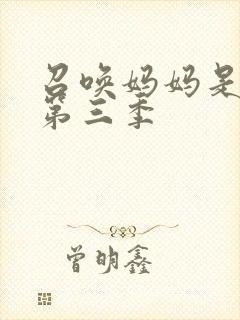 召唤妈妈是
第三季
曾明鑫